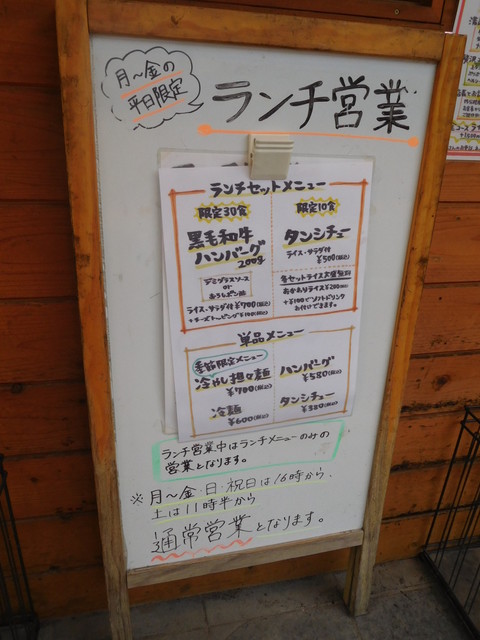 月～金の
平日限定
ランチ営業
ランチセットメニュー
限定30食
黒毛和牛
ハンバーグ
200g
デミグラスソース
or
おろしポン酢
ライス・サラダ付 ¥700(税込)
+チーズトッピング¥100(税込)
限定10食
タンシチュー
ライス・サラダ付
¥500(税込)
各セットライス大盛無料
おかわりライス¥200(税込)
+¥100でソフトドリンク
お付けできます。
単品メニュー
季節限定メニュー
冷やし担々麺
¥700(税込)
冷麺
¥600(税込)
ハンバーグ
¥580(税込)
タンシチュー
¥380(税込)
ランチ営業中はランチメニューのみの
営業となります。
※月～金・日・祝日は16時から、
土は11時半から
通常営業となります。